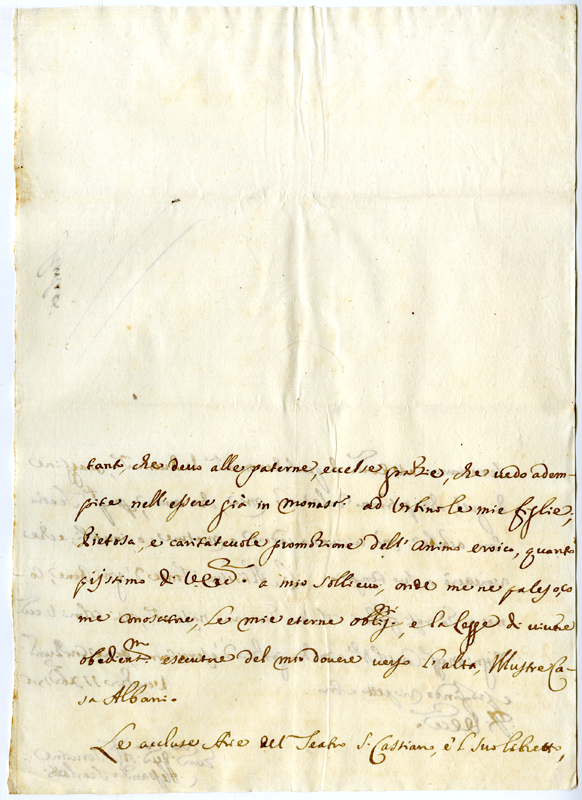 tant, che devo alle paterne, eccelse grazie, che vedo adem-
pite nell'essere già in monast. ad Urbino le mie figlie,
Pietosa, e caritatevole promozione dell'Animo eroico, quanto
pijssimo di a mio sollievo, onde me ne paleso, co
me le mie eterne oblig. e la legge di vivere
obedient. del mio dovere verso l'alta, Illustre Ca-
sa Albani.
Le accluse Arie del Teatro S. Cassiano, e'l suo libretto,